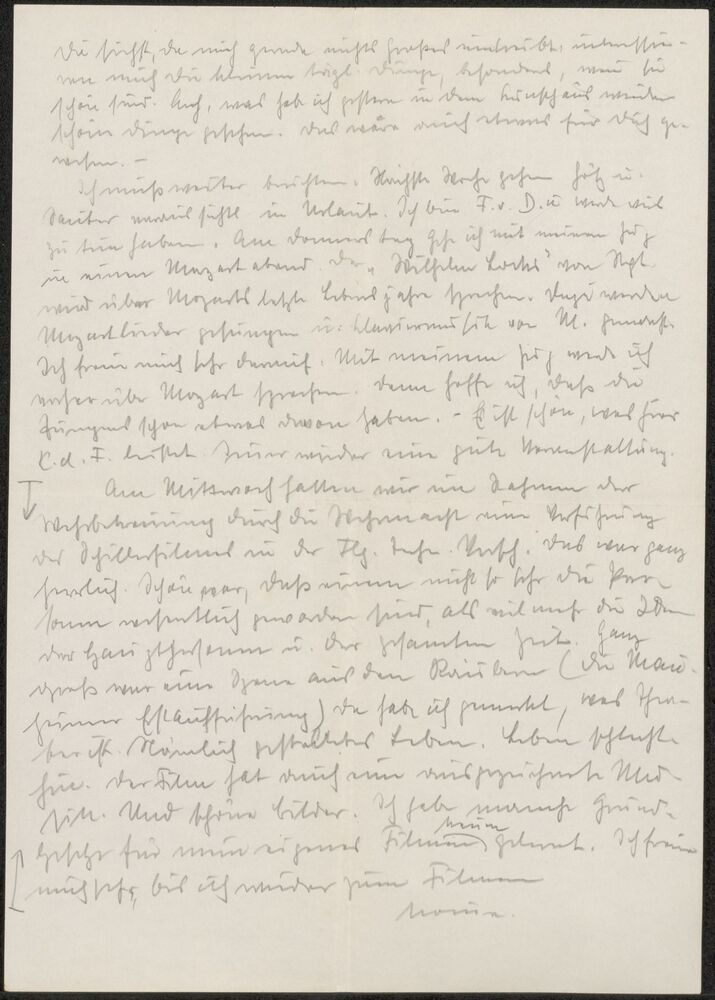 Du siehst, da mich gerade nichts großes umtreibt, interessie-
ren mich die kleinen tägl. Dinge, besonders, wenn sie
schön sind. Ach, was hab ich gestern in dem Kunsthaus wieder
schöne Dinge gesehen. Das wäre auch etwas für Dich ge-
wesen. –
Ich muß weiter berichten. Nächste Woche gehen Götz u.
Sautter voraussichtl. in Urlaub. Ich bin F. v. D. u. werde viel
zu tun haben. Am Donnerstag gehe ich mit meinem Zug
in einen Mozartabend. Der „Wilhelm Locks" von Stgt.
wird über Mozarts letzte Lebensjahre sprechen. Dazu werden
Mozartlieder gesungen u. Klaviermusik von M. gemacht.
Ich freue mich sehr darauf. Mit meinem Zug werde ich
vorher über Mozart sprechen. Dann hoffe ich, daß die
Jungens schon etwas davon haben. – Es ist schön, was hier
K.d.F. leistet. Immer wieder eine gute Veranstaltung.
Am Mittwoch hatten wir im Rahmen der
Wehrbetreuung durch die Wehrmacht eine Vorführung
des Schillerfilmes in der Flg. Techn. Vorsch. Das war ganz
herrlich. Schön war, daß einem nicht so sehr die Per-
sonen wesentlich geworden sind, als vielmehr die Ideen
der Hauptpersonen u. der gesamten Zeit. Ganz
groß war eine Szene aus den Räubern (die Mann-
heimer Erstaufführung) da habe ich gemerkt, was Thea-
ter ist. Nämlich gestaltetes Leben. Leben schlecht-
hin. Der Film hat auch eine ausgezeichnete Mu-
sik. Und schöne Bilder. Ich habe manche Grund-
gesetze für mein eigenes Filmen neu gelernt. Ich freue
mich sehr, bis ich wieder zum Filmen
komme.